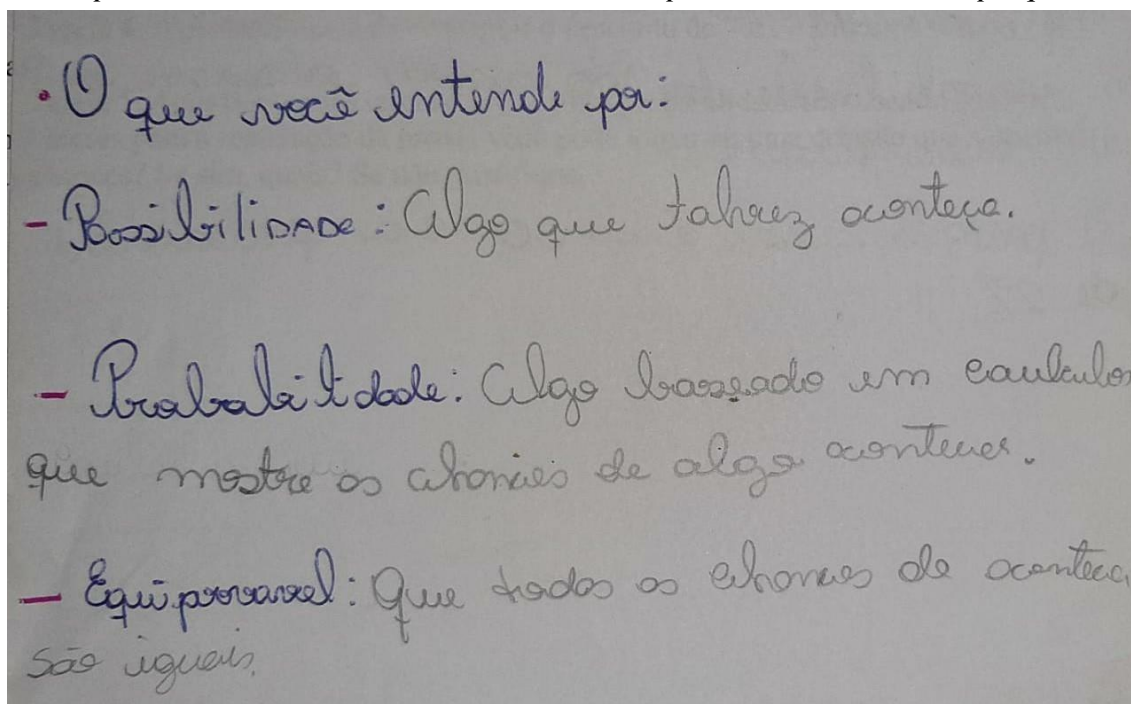 • O que você entende por:
- Possibilidade: Algo que talvez aconteça.
- Probabilidade: Algo baseado em caulculos
que mostre as chances de algo acontecer.
- Equiprovavel: Que todas as chances de acontecer
são iguais.